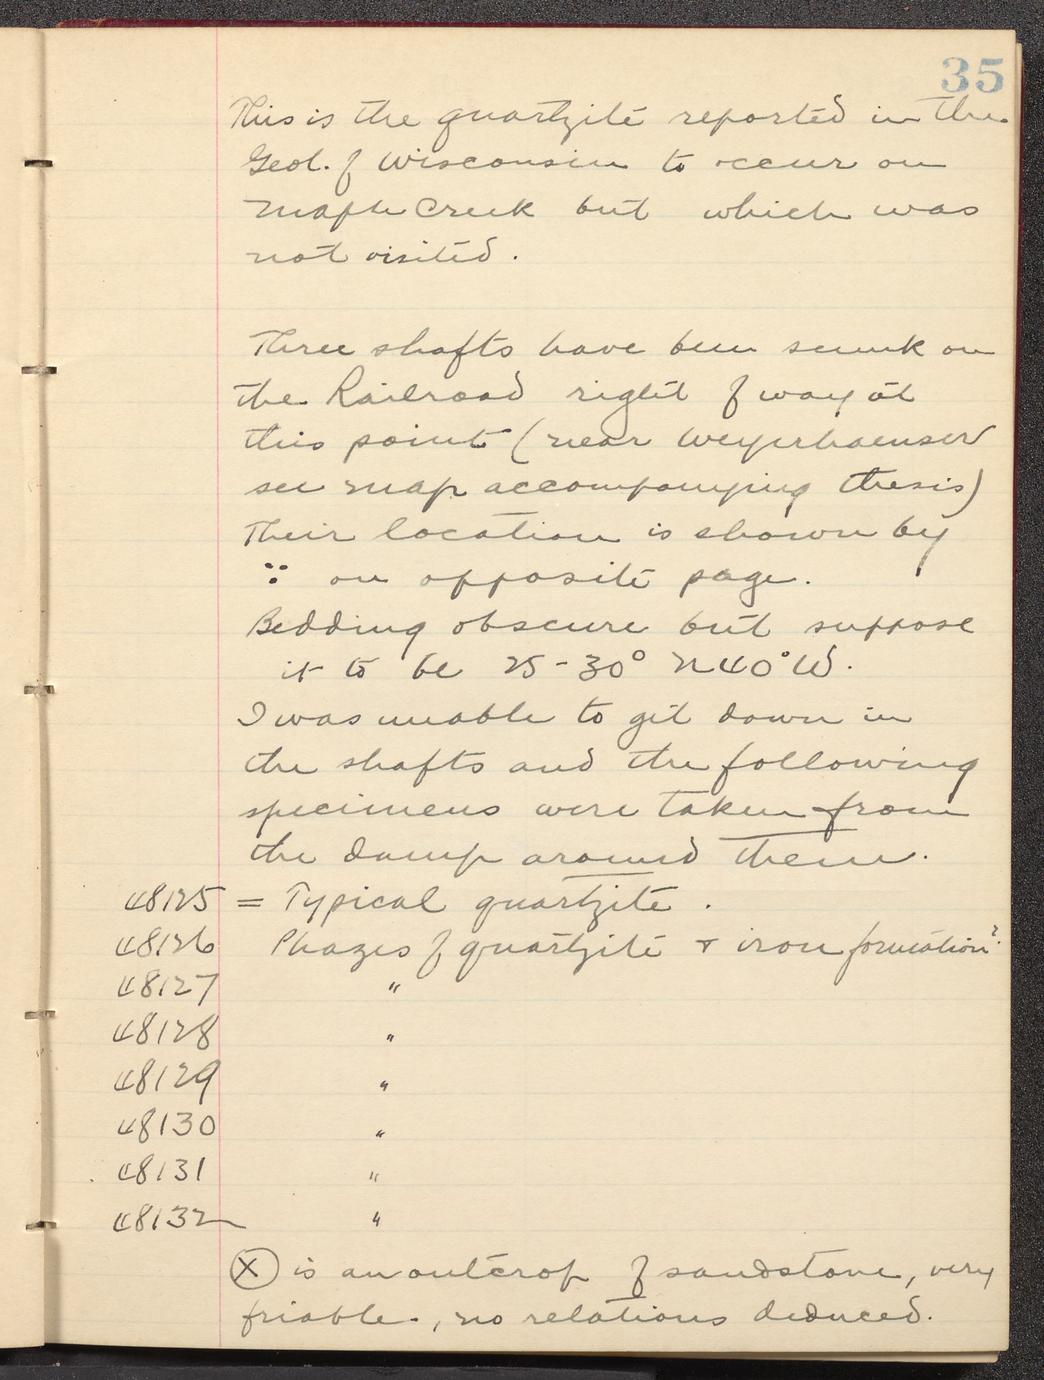 35
This is the quartzite reported in the
Geol. of Wisconsin to occur on
Maple Creek but which was
not visited.
Three shafts have been sunk on
the Railroad right of way at
this point (near Weyerhaeuser
see map accompanying thesis)
Their location is shown by
:: on opposite page.
Bedding obscure but suppose
it to be 25-30° N40°W.
I was unable to get down in
the shafts and the following
specimens were taken from
the dump around them.
48125 = Typical quartzite.
48126 Phazes of quartzite & iron formation?
48127 "
48128 "
48129 "
48130 "
48131 "
48132 "
(X) is an outcrop of sandstone, very
friable, no relations deduced.